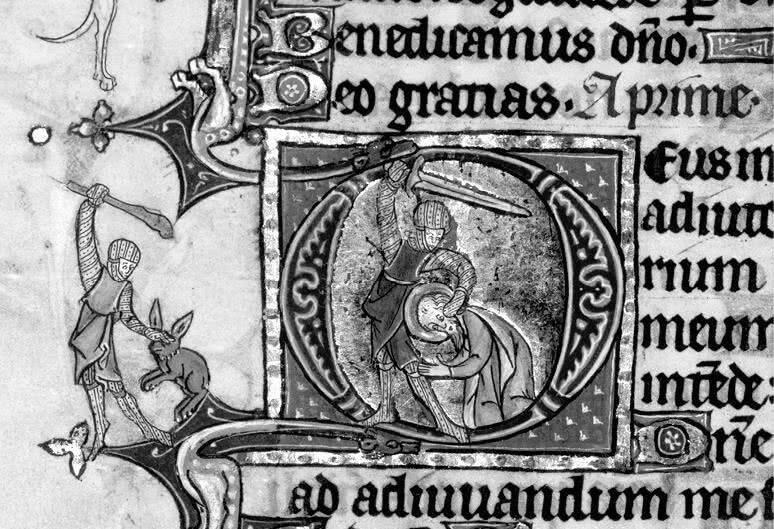 Benedicamus dño.
Deo gratias. A prime.
Deus m
adiuto
rium
meum
intẽde.
ñe
ad adiuuandum me f